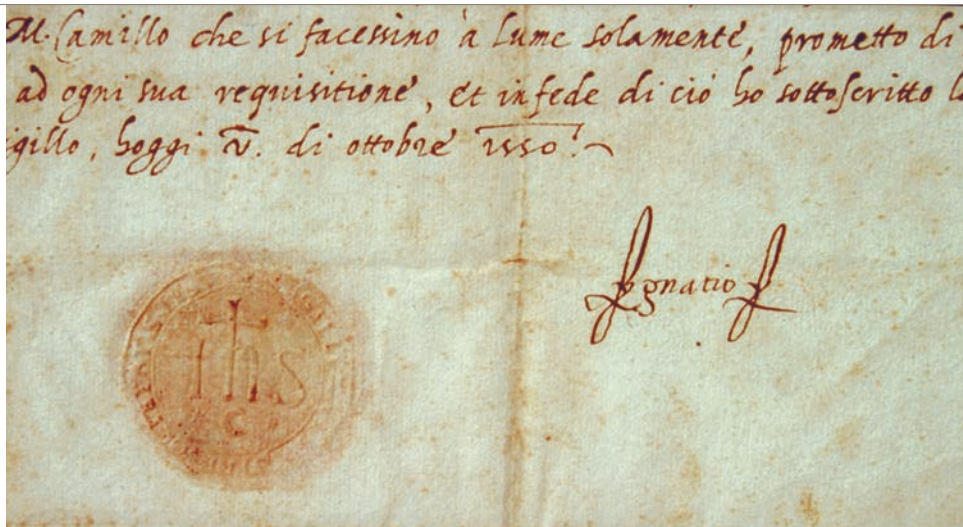 M. Camillo che si facessino à lume solamente, prometto di
ad ogni sua requisitione, et in fede di ciò ho sottoscritto
gillo, hoggi v. di ottobre 1550.
Ignatio
ihs